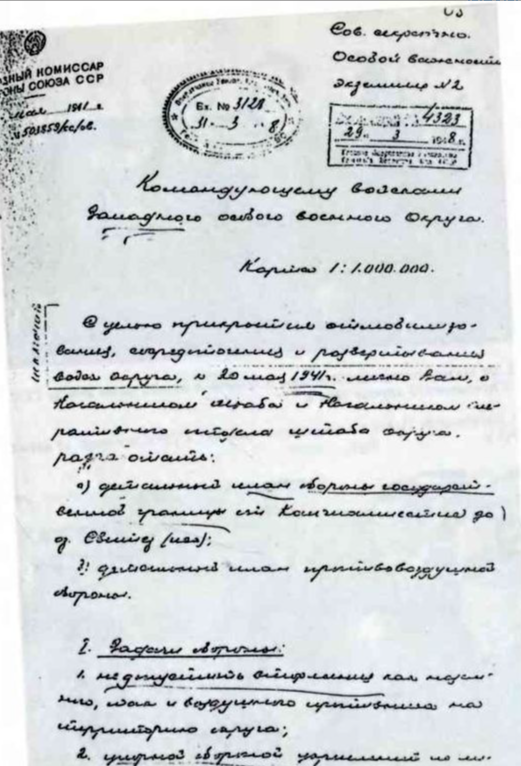 Сов. секретно.
Особой важности
Экземпляр №2
ДНЫЙ КОМИССАР
ОНЫ СОЮЗА ССР
мая 1941 г.
№ 503859/сс/ов.
Вх. № 3128
31 - 3 - 8
4323
29 3 1948 г.
Командующему войсками
Западного особого военного Округа.
Карта 1:1.000.000.
С целью прикрытия отмобилизо-
вания, сосредоточения и развертывания
войск округа, к 20 мая 1941г. лично Вам, с
Начальником штаба и Начальником опе-
ративного отдела штаба округа.
разработать:
а) детальный план обороны государст-
венной границы от Капчиамиестис до
оз. Свитез (иск);
б) детальный план противовоздушной
обороны.
I. Задачи обороны:
1. не допустить вторжения как назем-
ного, так и воздушного противника на
территорию округа;
2. упорной обороной укреплений по